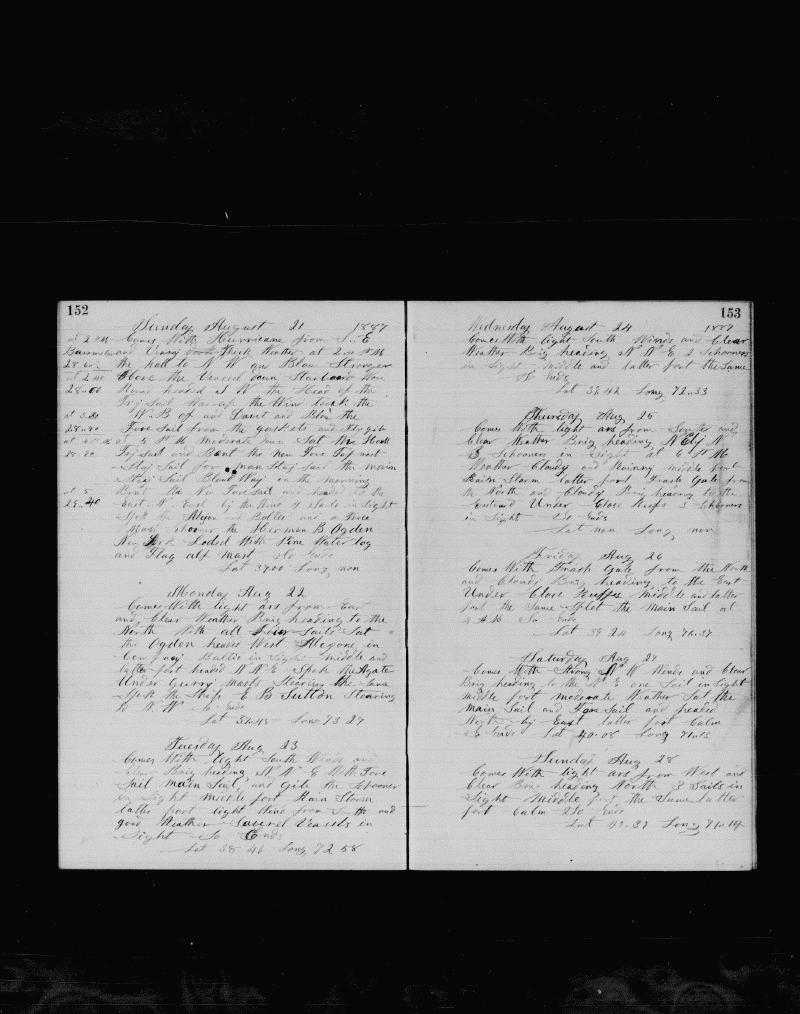 152
Sunday August 21 1887
at 2 PM Comes With Hurricane from S E
Barometer and Thick Weather at 2 PM
28.60 the hall to N W and Blow Stronger
at 2 40 Above the down Starboard
28.00 headed at W the Head of the
Top Sail the Wind took the
at 3.30 W B of and Davit and Blew the
28.80 Fore Sail from the gaskets and Flying gib
at 5 PM Moderate down Sat Hook
Top sail and Bent the new Fore Top mast
Stay Sail for man Stay Said the main
Stay Sail Blown Way in the morning
at 8 Bent the New Foresail and headed to the
29.40 East N East by the Wind 4 Sails in Sight
Spok and Bettie and a Three
Mast the Herman B Ogden
New York Loded With Pine Water log
and Flag alf mast So Ends
Lat 37.00 Long non
Monday Aug 22
Comes With light ars from East
and Clear Weather Brig heading to the
North With all Sails Sat
the Ogden heare West in
Company Bettie in Sight Middle and
latter part headed N N E Spok the Agate
Under Gurry masts Stearing the Same
Spok the Ship E B Sutton Stearing
N W So Ends
Lat 38.45 Long 73 27
Tuesday Aug 23
Comes With light South Winds and
Clear Brig heading N N E With Fore
Sail main Sail and gib the Schooner
in Sight middle part Rain Storm
latter part light Wind from South and
good Weather Saverel Vessels in
Sight So Ends
Lat 38 46 Long 72 58
153
Wednesday August 24 1887
Comes With light South Winds and Clear
Weather Brig heading N N E 2 Schooners
in Sight middle and latter part the Same
So Ends
Lat 38 42 Long 72.33
Thursday Aug 25
Comes With light ars from South and
Clear Weather Brig heading N E by N
3 Schooners in Sight at 6 PM
Weather Cloudy and Rainny middle part
Rain Storm latter part Frash Gale from
the North and Cloudy Brig heading to the
Eastward Under Close Reefs 3 Schooners
in Sight So Ends
Lat non Long non
Friday Aug 26
Comes With Frash Gale from the North
and Cloudy Brig heading to the East
Under Close Reeffes Middle and latter
part the Same Split the Main Sail at
4 A M So Ends
Lat 39 24 Long 71.37
Saturday Aug 27
Comes With Strong N W Winds and Clear
Brig heading to the N E one Sail in Sight
middle part moderate Weather Sat the
Main Sail and Fore Sail and headed
North by East latter part Calm
So Ends Lat 40.08 Long 71.15
Sunday Aug 28
Comes With light ars from West and
Clear Brig heading North 3 Sails in
Sight Middle part the Same latter
part Calm So Ends
Lat 40.37 Long 71.14